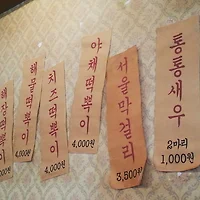 해장떡볶이
해물떡볶이
4,000원
치즈떡볶이
4,000원
야채떡볶이
4,000원
서울막걸리
3,500원
통통새우
2마리
1,000원